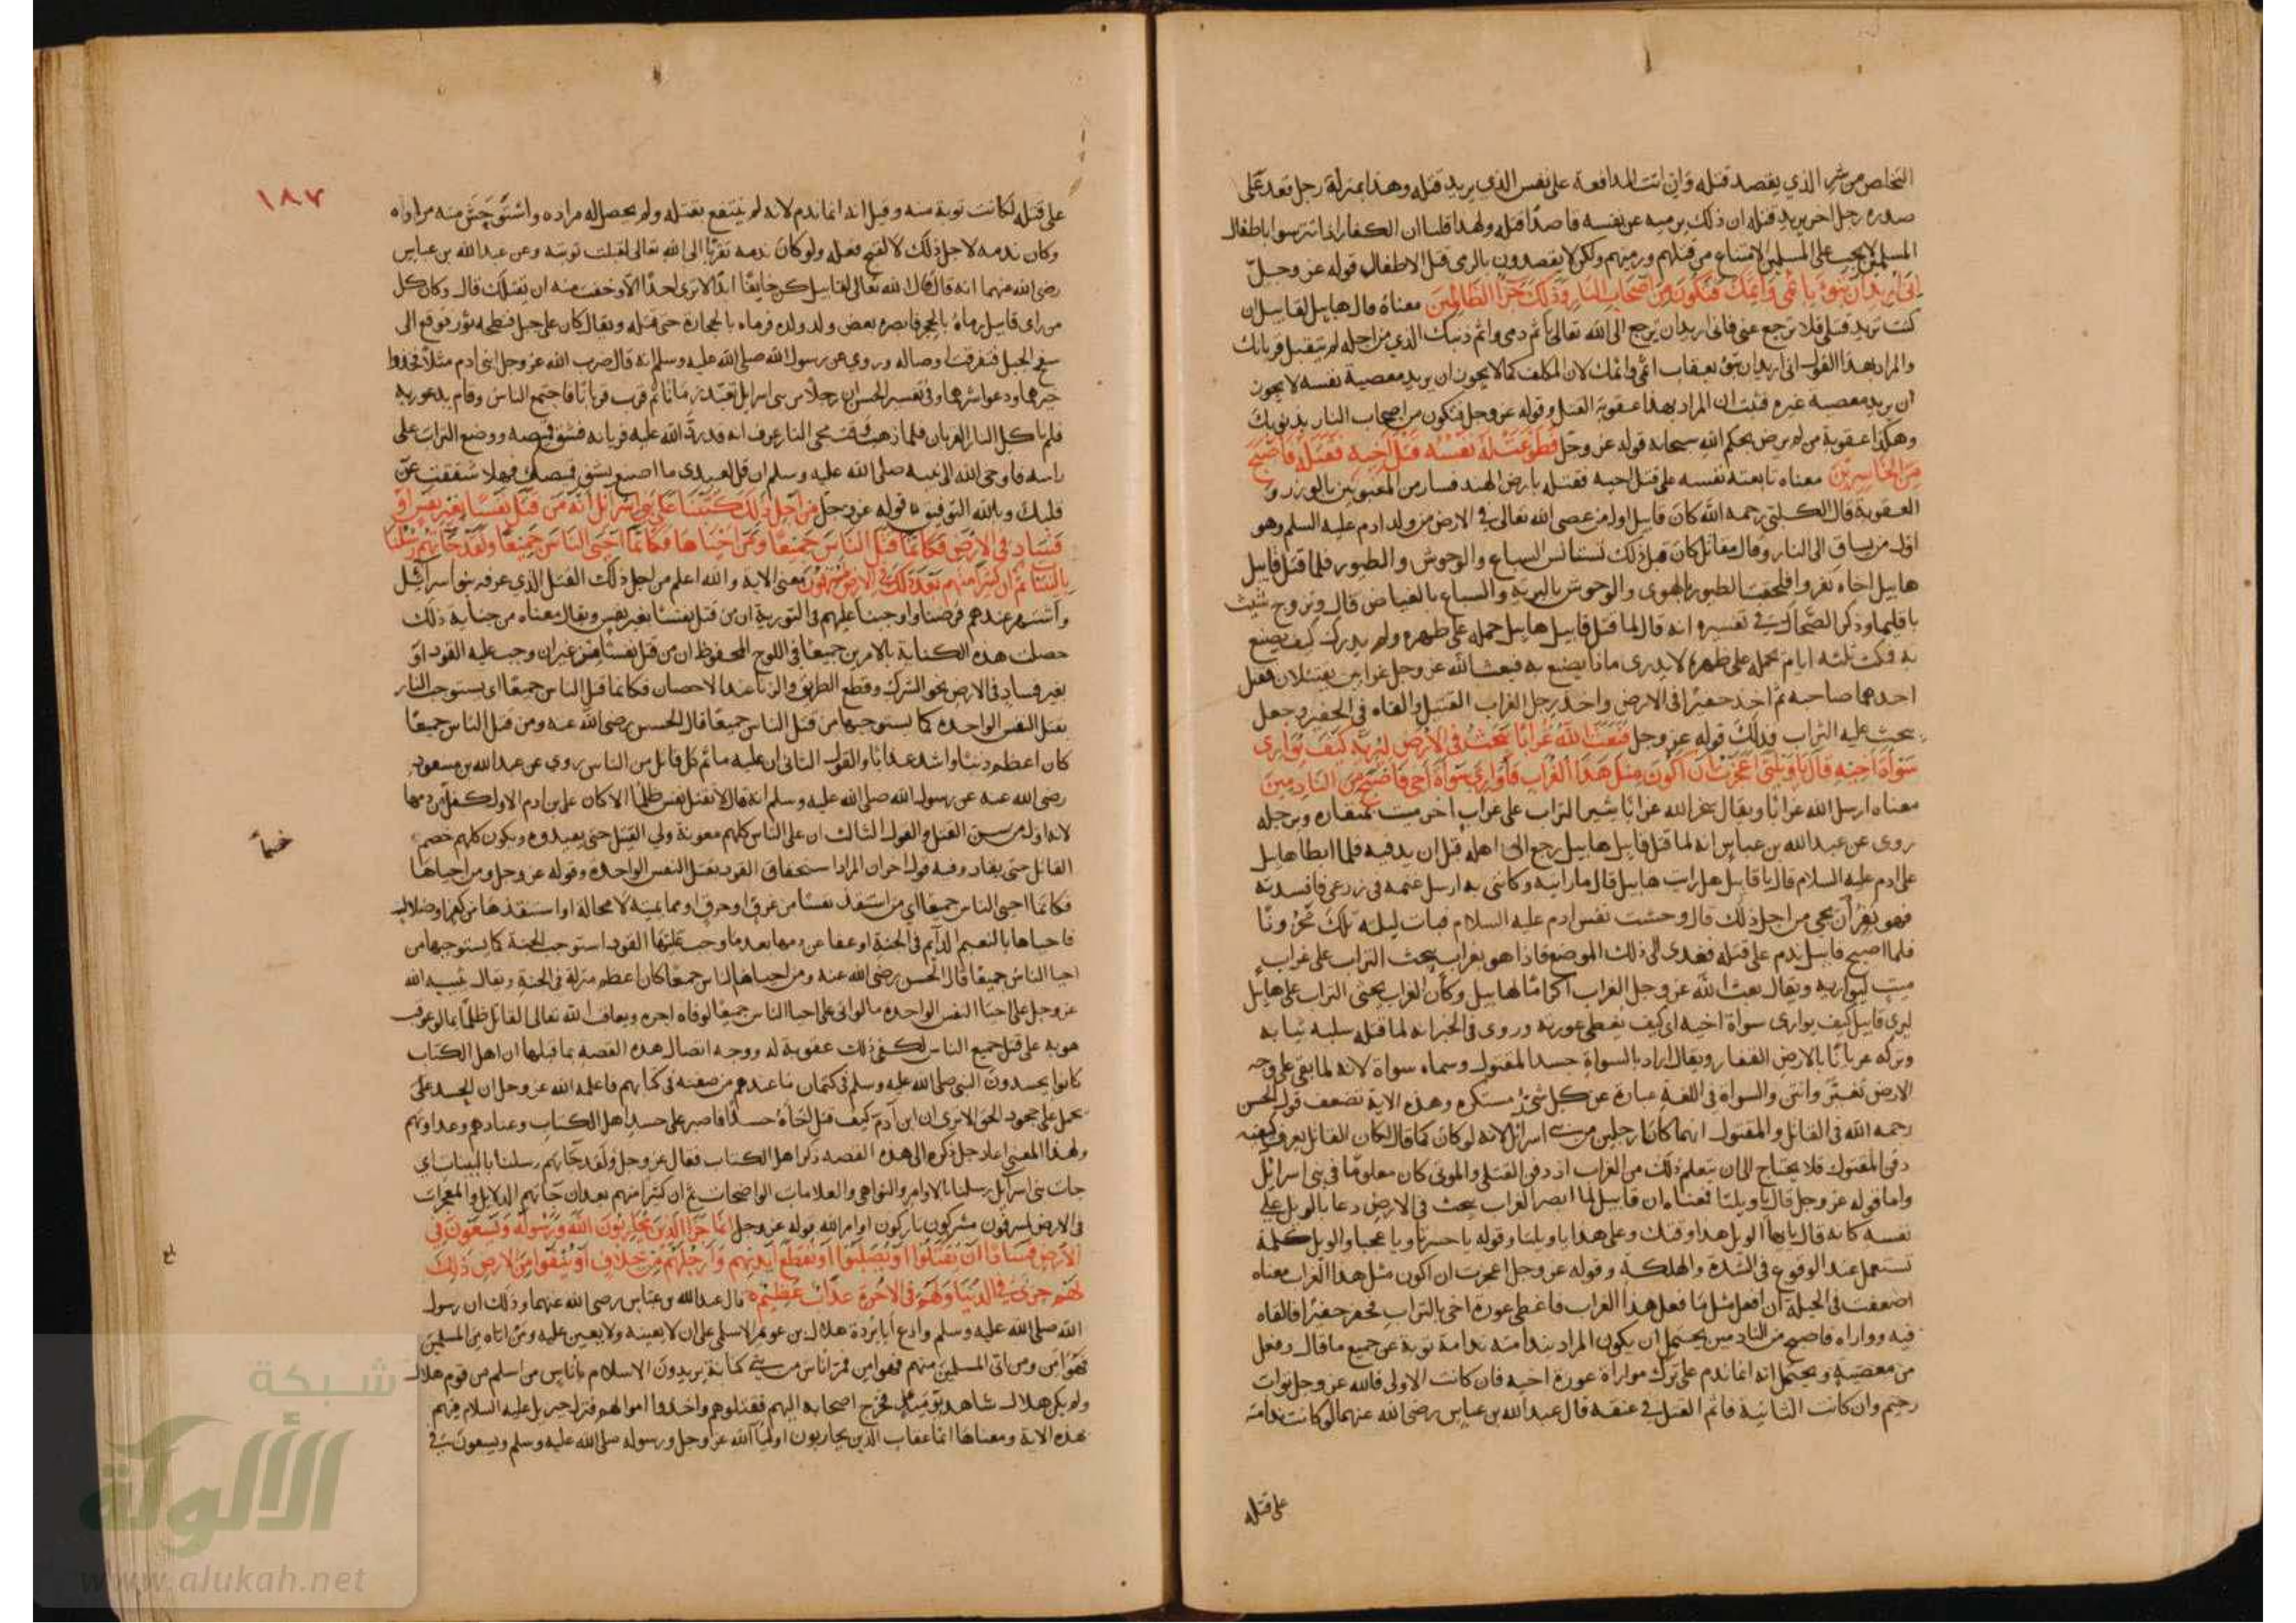 التخلص من شر الذي يقصد قتله وان اتت المدافعة على نفس الذي يريد قتله وهذا بمنزلة رجل قعد على
صدره رجل اخر يريد قتله ان ذلك يرميه عن نفسه قاصدا قتله ولهذا قلنا ان الكفار اذا تترسوا باطفال
المسلمين لا يجب على المسلمين الامتناع من قتلهم ورميهم ولكن لا يقصدون بالرمى قتل الاطفال قوله عز وجل
انى اريد ان تبوء باثمى واثمك فتكون من اصحاب النار وذلك جزا الظالمين معناه قال هابيل لقابيل ان
كنت تريد قتلى فلا ترجع عنى فانى اريد ان ترجع الى الله تعالى باثم دمى واثم ذنبك الذي من اجله لم يتقبل قربانك
والمراد بهذا القول انى اريد ان تبوء بعقاب اثمى واثمك لان المكلف كما لا يجوز ان يريد معصية نفسه لا يجوز
ان يريد معصية غيره فثبت ان المراد بهذا عقوبة القتل وقوله عز وجل فتكون من اصحاب النار بذنوبك
وهكذا عقوبة من لم يرض بحكم الله سبحانه قوله عز وجل فطوعت له نفسه قتل اخيه فقتله فاصبح
من الخاسرين معناه تابعته نفسه على قتل اخيه فقتله بارض الهند فصار من المغبونين بالوزر و
العقوبة قال الكلبى رحمه الله كان قابيل اول من عصى الله تعالى في الارض من ولد ادم عليه السلم وهو
اول من يساق الى النار وقال مقاتل كان قبل ذلك تستانس السباع والوحوش والطيور فلما قتل قابيل
هابيل اخاه نفروا فلحقت الطيور بالهوى والوحوش بالبرية والسباع بالغياض قال وتزوج شيث
باقليما وذكر الضحاك في تفسيره انه قال لما قتل قابيل هابيل حمله على ظهره ولم يدرك كيف يصنع
به فمكث ثلثه ايام يحمله على ظهره لا يدرى ماذا يصنع به فبعث الله عز وجل غرابين يقتتلان فقتل
احدهما صاحبه ثم اخذ حفيرا في الارض واخذ برجل الغراب القتيل والقاه في الحفير وجعل
يبحث عليه التراب فذلك قوله عز وجل فبعث الله غرابا يبحث في الارض ليريه كيف يوارى
سوأة اخيه قال يا ويلتى اعجزت ان اكون مثل هذا الغراب فاوارى سوأة اخى فاصبح من النادمين
معناه ارسل الله غرابا ويقال سخر الله غرابا يثير التراب على غراب اخر ميت بمنقاره وبرجله
روى عن عبد الله بن عباس انه لما قتل قابيل هابيل رجع الى اهله قبل ان يدفنه فلما ابطا هابيل
على ادم عليه السلام قال يا قابيل هل رايت هابيل قال ما رايته وكانى به ارسل غنمه في زرعى فافسدته
فهو نفر ان يجى من اجل ذلك قال وحشت نفس ادم عليه السلام فبات ليلته تلك محزونا
فلما اصبح قابيل ندم على قتله فغدى الى ذلك الموضع فاذا هو بغراب يبحث التراب على غراب
ميت ليواريه ويقال بعث الله عز وجل الغراب اكراما لهابيل وكان الغراب يحثى التراب على هابيل
ليرى قابيل كيف يوارى سواة اخيه اى كيف يغطى عورته وروى في الخبر انه لما قتله سلبه ثيابه
وتركه عريانا بالارض القفار ويقال اراد بالسواة جسد المقتول وسماه سواة لانه لما بقى على وجه
الارض تغير وانتن والسواة في اللغة عبارة عن كل شئ مستكره وهذه الاية تضعف قول الحسن
رحمه الله في القاتل والمقتول انهما كانا رجلين من بنى اسرائل لانه لو كان كما قال لكان القاتل يعرف كيفيه
دفن المقتول فلا يحتاج الى ان يتعلم ذلك من الغراب اذ دفن القتلى والموتى كان معلوما في بنى اسرائيل
واما قوله عز وجل قال يا ويلتا فمعناه ان قابيل لما ابصر الغراب يبحث في الارض دعا بالويل على
نفسه كانه قال يا ايها الويل هذا وقتك وعلى هذا يا ويلتا وقوله يا حسرتا ويا عجبا والويل كلمة
تستعمل عند الوقوع في الشدة والهلكة وقوله عز وجل اعجزت ان اكون مثل هذا الغراب معناه
اضعفت في الحيلة ان افعل مثل ما فعل هذا الغراب فاغطى عورة اخى بالتراب فحفر حفيرا فالقاه
فيه وواراه فاصبح من النادمين يحتمل ان يكون المراد بندامته ندامة توبة عن جميع ما قال وفعل
من معصية ويحتمل انه انما ندم على ترك مواراة عورة اخيه فان كانت الاولى فالله عز وجل تواب
رحيم وان كانت الثانية فاثم القتل في عنقه قال عبد الله بن عباس رضى الله عنهما لو كانت ندامته
على قتله
١٨٧
على قتله لكانت توبة منه وقيل انه انما ندم لانه لم ينتفع بقتله ولم يحصل له مراده واستوحش منه من اواه
وكان ندمه لاجل ذلك لا لقبح فعله ولو كان ندمه تقربا الى الله تعالى لقبلت توبته وعن عبد الله بن عباس
رضى الله عنهما انه قال قال الله تعالى لقابيل كن خايفا ابدا لا ترى احدا الا وخفت منه ان يقتلك قال وكان كل
من راى قابيل رماه بالحجر فابصره بعض ولد ولده فرماه بالحجارة حتى قتله ويقال كان على جبل فنطحه ثور فوقع الى
سفح الجبل فتفرقت اوصاله وروى عن رسول الله صلى الله عليه وسلم انه قال ضرب الله عز وجل ابنى ادم مثلا فخذوا
خيرهما ودعوا شرهما وفي تفسير الحسن ان رجلا من بنى اسرايل تعبد زمانا ثم قرب قربانا فاجتمع الناس وقام يدعو ربه
فلم تاكل النار القربان فلما ذهب وقت مجى النار عرف انه قد رد الله عليه قربانه فشق قميصه ووضع التراب على
راسه فاوحى الله الى نبيه صلى الله عليه وسلم ان قل لعبدى ما اصنع بشق قميصك فهلا شققت عن
قلبك وبالله التوفيق قوله عز وجل من اجل ذلك كتبنا على بنى اسرائل انه من قتل نفسا بغير نفس او
فساد في الارض فكانما قتل الناس جميعا ومن احياها فكانما احيى الناس جميعا ولقد جاتهم رسلنا
بالبينات ثم ان كثيرا منهم بعد ذلك في الارض لمسرفون معنى الاية والله اعلم من اجل ذلك القتل الذي عرفه بنو اسرائيل
واشتهر عندهم فرضنا واوجبنا عليهم في التورية ان من قتل نفسا بغير نفس ويقال معناه من جناية ذلك
حصلت هذه الكتابة بالامرين جميعا في اللوح المحفوظ ان من قتل نفسا من غير ان وجب عليه القود او
بغير فساد في الارض نحو الشرك وقطع الطريق والزنا عند الاحصان فكانما قتل الناس جميعا اى يستوجب النار
بقتل النفس الواحدة كما يستوجبها من قتل الناس جميعا قال الحسن رضى الله عنه ومن قتل الناس جميعا
كان اعظم ذنبا واشد عذابا والقول الثانى ان عليه ماثم كل قاتل من الناس روى عن عبد الله بن مسعود
رضى الله عنه عن رسول الله صلى الله عليه وسلم انه قال لا تقتل نفس ظلما الا كان على بن ادم الاول كفل من دمها
لانه اول من سن القتل والقول الثالث ان على الناس كلهم معونة ولى القتيل حتى يقيدوه ويكون كلهم خصم
خصماء
القاتل حتى يقاد وفيه قول اخر ان المراد استحقاق القود بقتل النفس الواحدة وقوله عز وجل ومن احياها
فكانما احيى الناس جميعا اى من استنقذ نفسا من غرق او حرق او مما يميته لا محالة او استنقذها من كفر او ضلالة
فاحياها بالنعيم الدايم في الجنة او عفا عن دمها بعد ما وجب عليها القود استوجب الجنة كما يستوجبها من
احيا الناس جميعا قال الحسن رضى الله عنه ومن احيا الناس جميعا كان اعظم منزلة في الجنة ويقال يثيبه الله
عز وجل على احيا النفس الواحدة ما لو اتى على احيا الناس جميعا لوفاه اجره ويعاقب الله تعالى القاتل ظلما بما لو عوقب
هو به على قتل جميع الناس لكفى ذلك عقوبة له ووجه اتصال هذه القصة بما قبلها ان اهل الكتاب
كانوا يحسدون النبى صلى الله عليه وسلم في كتمان ما عندهم من صفته في كتابهم فاعلمه الله عز وجل ان الحسد على
يحمل على جحود الحق الا ترى ان ابن آدم كيف قتل اخاه حسدا فاصبر على حسد اهل الكتاب وعنادهم وعداوتهم
ولهذا المعنى اعاد جل ذكره الى هذه القصه ذكر اهل الكتاب فقال عز وجل ولقد جاتهم رسلنا بالبينات اي
جات بنى اسرايل رسلنا بالاوامر والنواهى والعلامات الواضحات ثم ان كثيرا منهم بعد ان جاتهم الدلايل والمعجزات
في الارض لمسرفون مشركون تاركون اوامر الله قوله عز وجل انما جزا الذين يحاربون الله ورسوله ويسعون في
الارض فسادا ان يقتلوا او يصلبوا او تقطع ايديهم وارجلهم من خلاف او ينفوا من الارض ذلك
لهم خزى في الدنيا ولهم في الاخرة عذاب عظيم قال عبد الله بن عباس رضى الله عنهما وذلك ان رسول
الله صلى الله عليه وسلم وادع ابا بردة هلال بن عويمر الاسلمى على ان لا يعينه ولا يعين عليه ومن اتاه من المسلمين
فهو امن ومن اتى المسلمين منهم فهو امن فمر اناس من بنى كنانة يريدون الاسلام باناس من اسلم من قوم هلال
ولم يكن هلال شاهدا يومئذ فخرج اصحابه اليهم فقتلوهم واخذوا اموالهم فنزل جبريل عليه السلام فيهم
بهذه الاية ومعناها انما عقاب الذين يحاربون اوليا الله عز وجل ورسوله صلى الله عليه وسلم ويسعون في
بلغ
شبكة
الألوكة
www.alukah.net